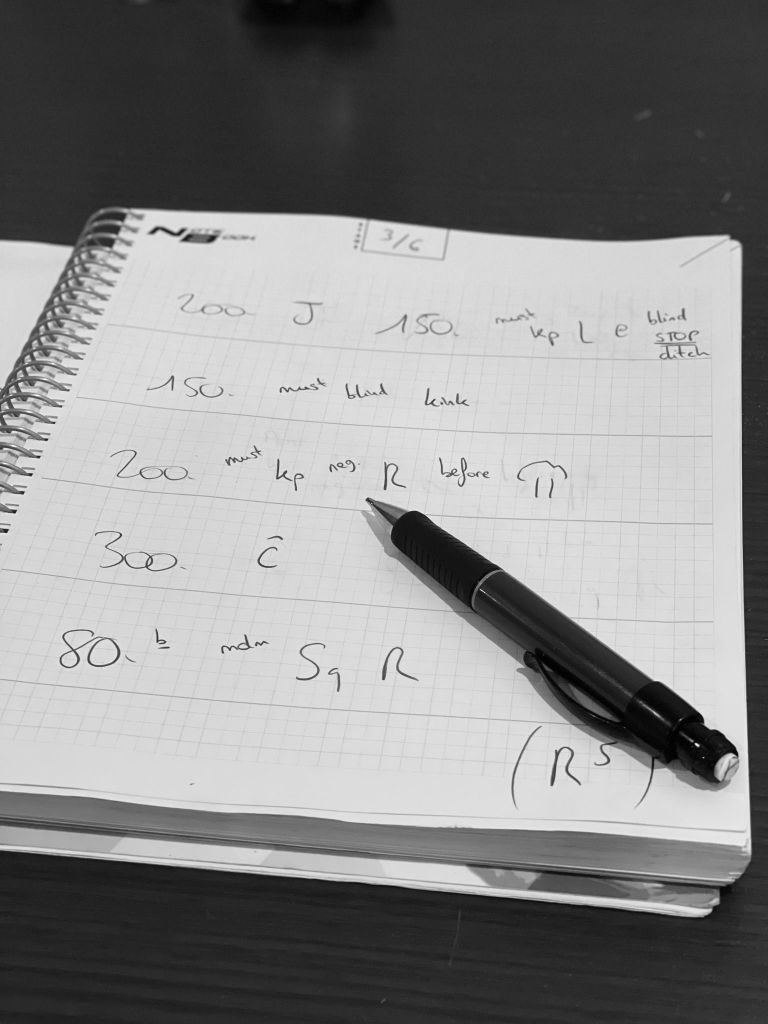 NOTE BOOK
3/6
200. J 150. must kp L e blind STOP ditch
150. must blind kink
200. must kp neg. R before
300. ĉ
80. b mdm Sq R
(R 5)